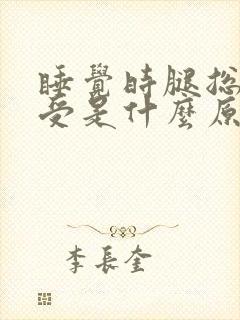 睡覺時腿总
受是什麼原
李長奎